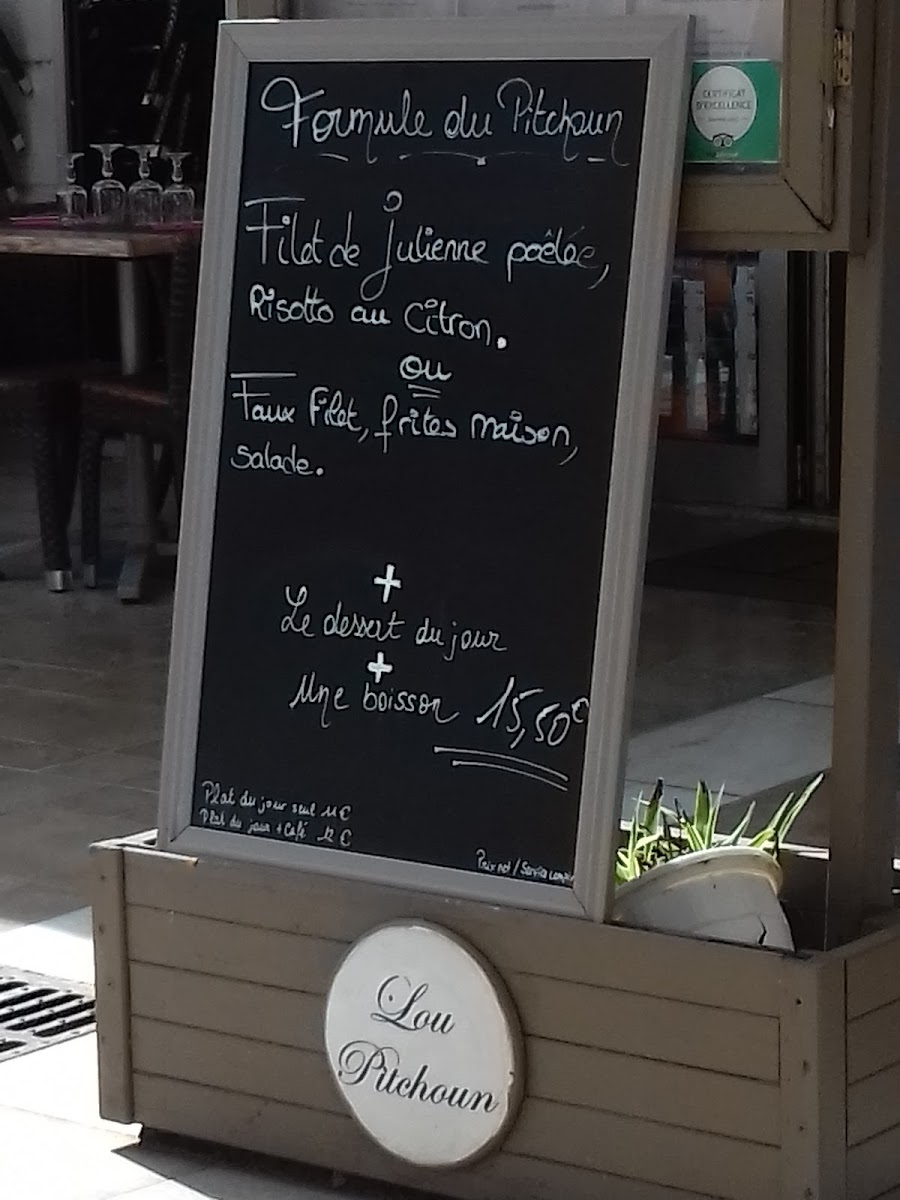 Formule du Pitchoun
Filet de Julienne poêlée,
Risotto au Citron.
ou
Faux Filet, frites maison,
salade.
+
Le dessert du jour
+
Une boisson 15,50€
Plat du jour seul 11€
Plat du jour + Café 12€
Prix net / Service compris
CERTIFICAT
D'EXCELLENCE
Lou
Pitchoun